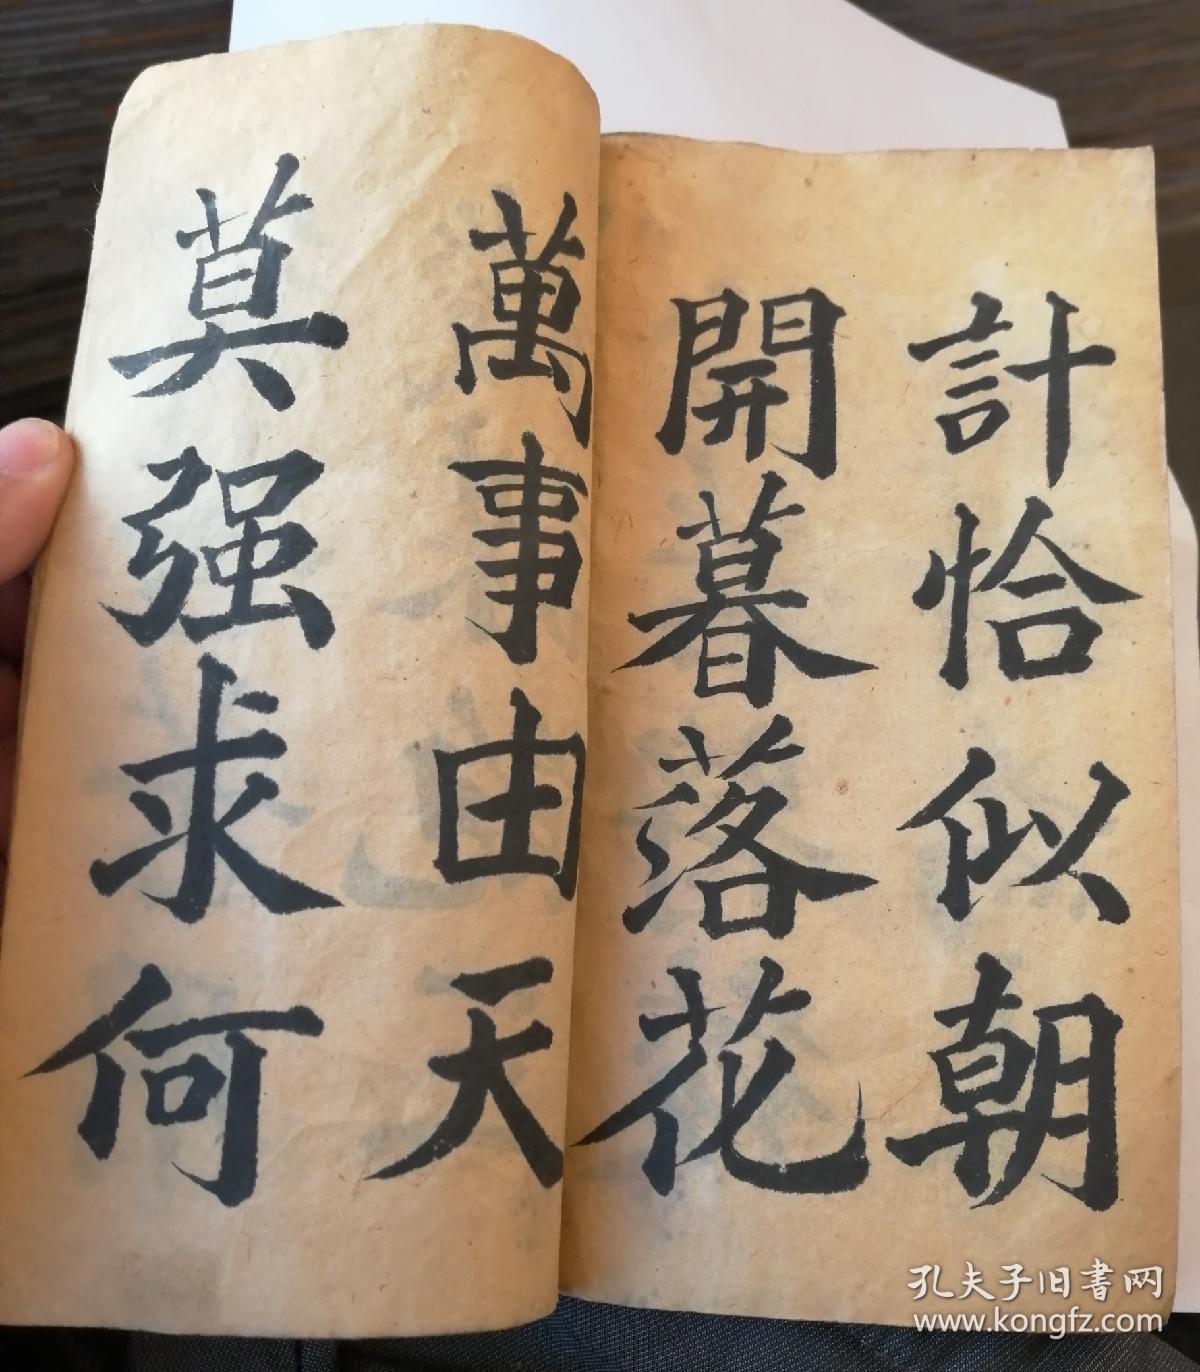 計恰似朝
開暮落花
萬事由天
莫强求何
孔夫子旧書网
www.kongfz.com